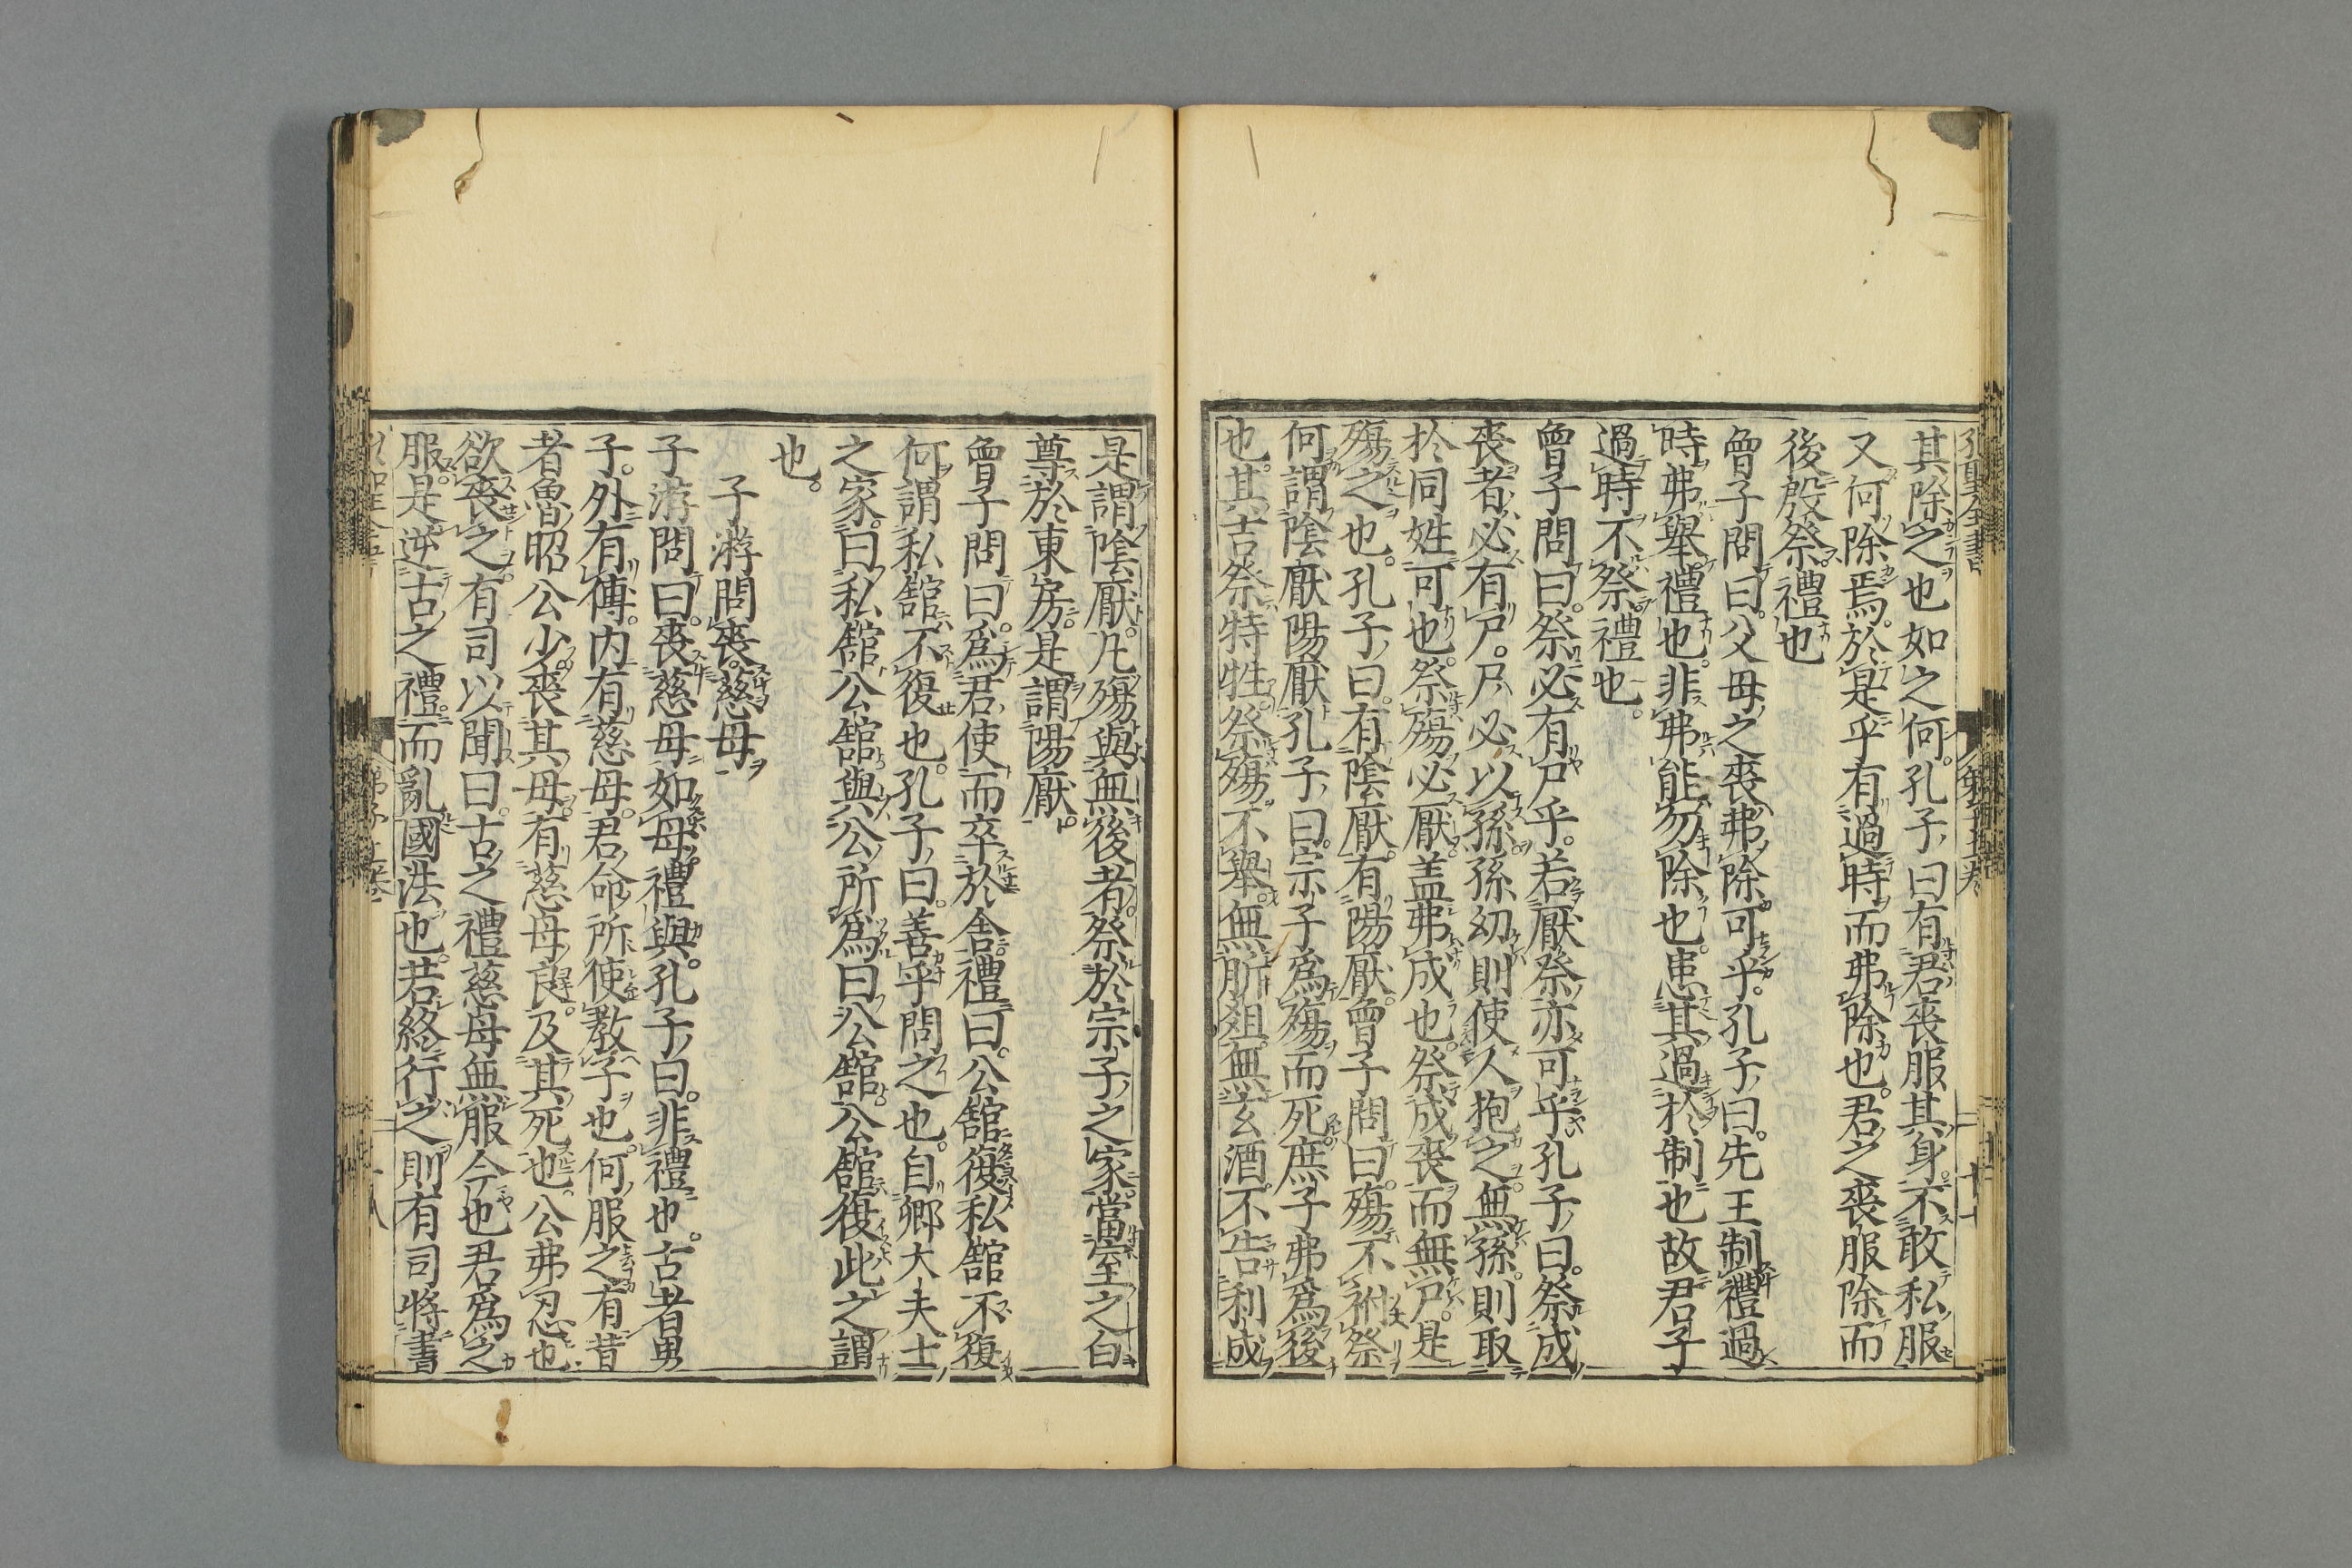 其除之也如之何。孔子曰有君喪服其身。不敢私服
又何除焉。於是乎有過時而弗除也。君之喪服除而
後殷祭。禮也
曾子問曰。父母之喪。弗除。可乎。孔子曰。先王制禮過
時弗舉。禮也。非弗能勿除也。患其過於制也故君子
過時不祭。禮也。
曾子問曰。祭必有尸乎。若厭祭亦可乎孔子曰。祭成
喪者。必有尸。尸必以孫。孫幼則使人抱之。無孫。則取
於同姓可也。祭殤必厭。盖弗成也。祭成喪而無尸。是
殤之也。孔子曰。有陰厭。有陽厭。曾子問曰。殤不祔祭
何謂陰厭陽厭孔子曰。宗子爲殤而死。庶子弗爲後
也。其吉祭特牲。祭殤不舉。無肵俎。無玄酒。不告利成
是謂陰厭。凡殤與無後者。祭於宗子之家。當室之白
尊於東房。是謂陽厭。
曾子問曰。爲君使而卒於舍。禮曰。公舘復私舘不復
何謂私舘不復也。孔子曰。善乎問之也。自卿大夫士
之家。曰私舘公舘與公所爲曰公舘。公舘復此之謂
也。
子游問喪慈母
子游問曰。喪慈母如母禮與。孔子曰。非禮也。古者男
子。外有傅。内有慈母。君命所使教子也。何服之有昔
者魯昭公少喪其母。有慈母良。及其死也。公弗忍也。
欲喪之。有司以聞曰。古之禮慈母無服今也君爲之
服。是逆古之禮。而亂國法也。若終行之則有司將書